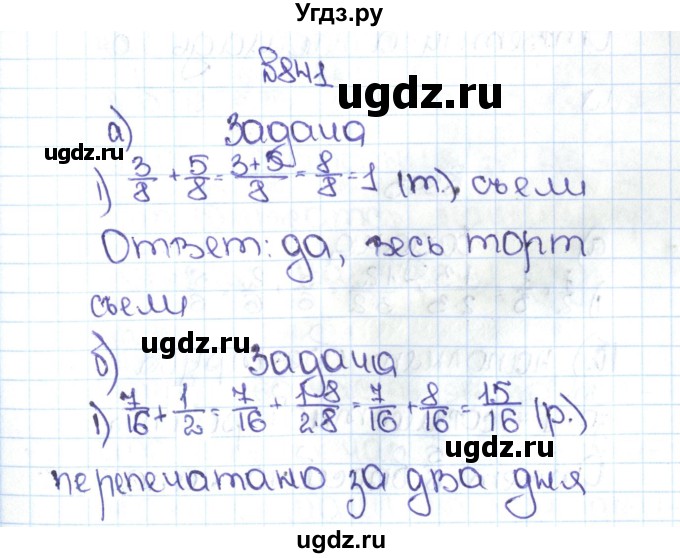 Угдз.ру
В841
ugdz.ru
а) Задача
ugdz.ru
1) 3/8 + 5/8 = (3+5)/8 = 8/8 = 1 (т.), съели
Ответ: да, весь торт
съели
ugdz.ru
б) Задача
1) 7/16 + 1/2 = 7/16 + (1·8)/(2·8) = 7/16 + 8/16 = 15/16 (р.)
ugdz.ru
перепечатано за два дня
ugdz.ru